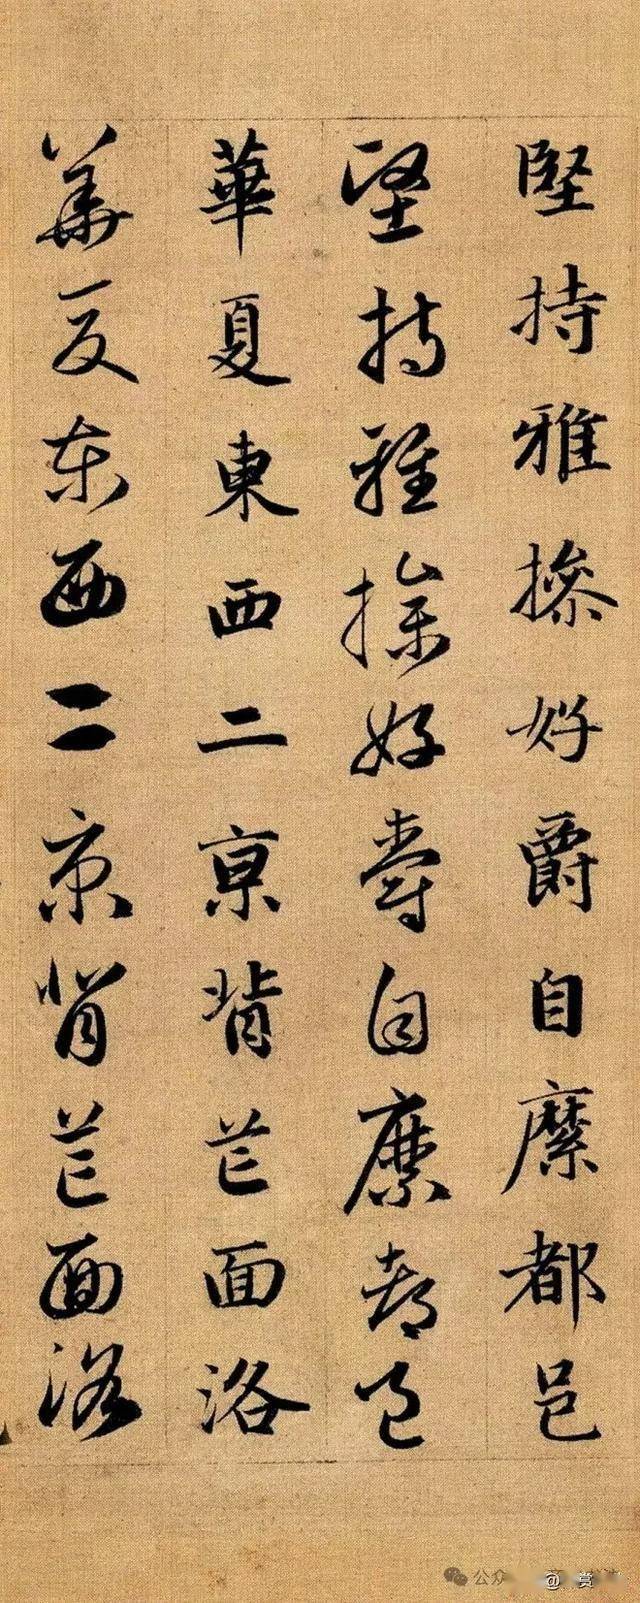 堅持雅操好爵自縻都邑
堅持雅操好爵自縻都邑
華夏東西二京背芒面洛
華夏東西二京背芒面洛
公众
@ 赏